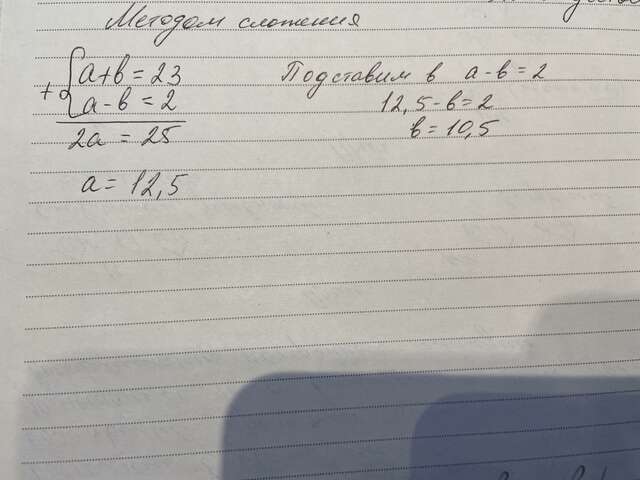 Методом сложения
+ { a+b = 23
a-b = 2
2a = 25
a = 12,5
Подставим в a-b = 2
12,5-b = 2
b = 10,5